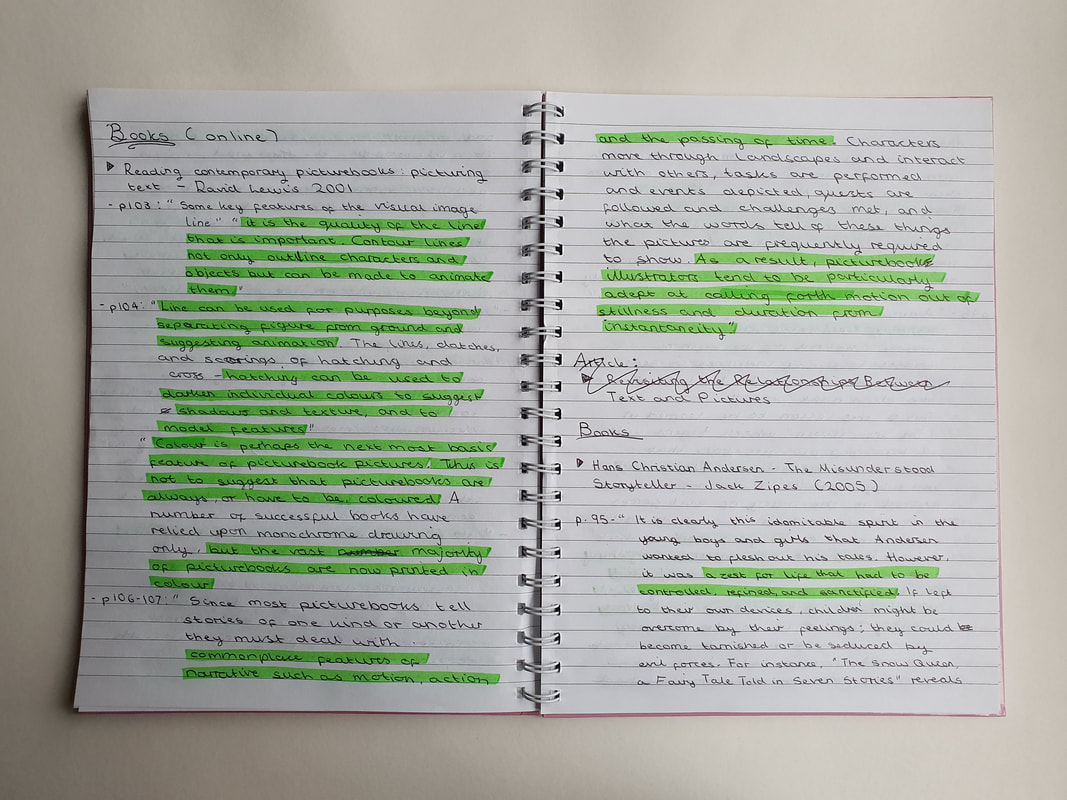 Books (online)
Reading contemporary picturebooks: picturing
text - David Lewis 2001
- p103: "Some key features of the visual image
line" "it is the quality of the line
that is important. Contour lines
not only outline characters and
objects but can be made to animate
them"
- p104: "Line can be used for purposes beyond
separating figure from ground and
suggesting animation. The lines, datches,
and scorings of hatching and
cross-hatching can be used to
darken individual colours to suggest
shadows and texture, and to
model features"
"Colour is perhaps the next most basic
feature of picturebook pictures. This is
not to suggest that picturebooks are
always, or have to be, coloured. A
number of successful books have
relied upon monochrome drawing
only, but the vast number majority
of picturebooks are now printed in
colour
- p106-107: "Since most picturebooks tell
stories of one kind or another
they must deal with
commonplace features of
narrative such as motion, action
and the passing of time. Characters
move through landscapes and interact
with others, tasks are performed
and events depicted, quests are
followed and challenges met, and
what the words tell of these things
the pictures are frequently required
to show. As a result, picturebook
illustrators tend to be particularly
adept at calling forth motion out of
stillness and duration from
instantaneity"
Article:
Revisiting the Relationships Between
Text and Pictures
Books
Hans Christian Andersen - The Misunderstood
Storyteller - Jack Zipes (2005)
p.95 - "It is clearly this idomitable spirit in the
young boys and girls that Andersen
wanted to flesh out his tales. However,
it was a zest for life that had to be
controlled, refined, and sanctified. If left
to their own devices, children might be
overcome by their feelings; they could be
become tarnished or be seduced by
evil forces. For instance, "The Snow Queen,
a Fairy Tale Told in Seven Stories" reveals